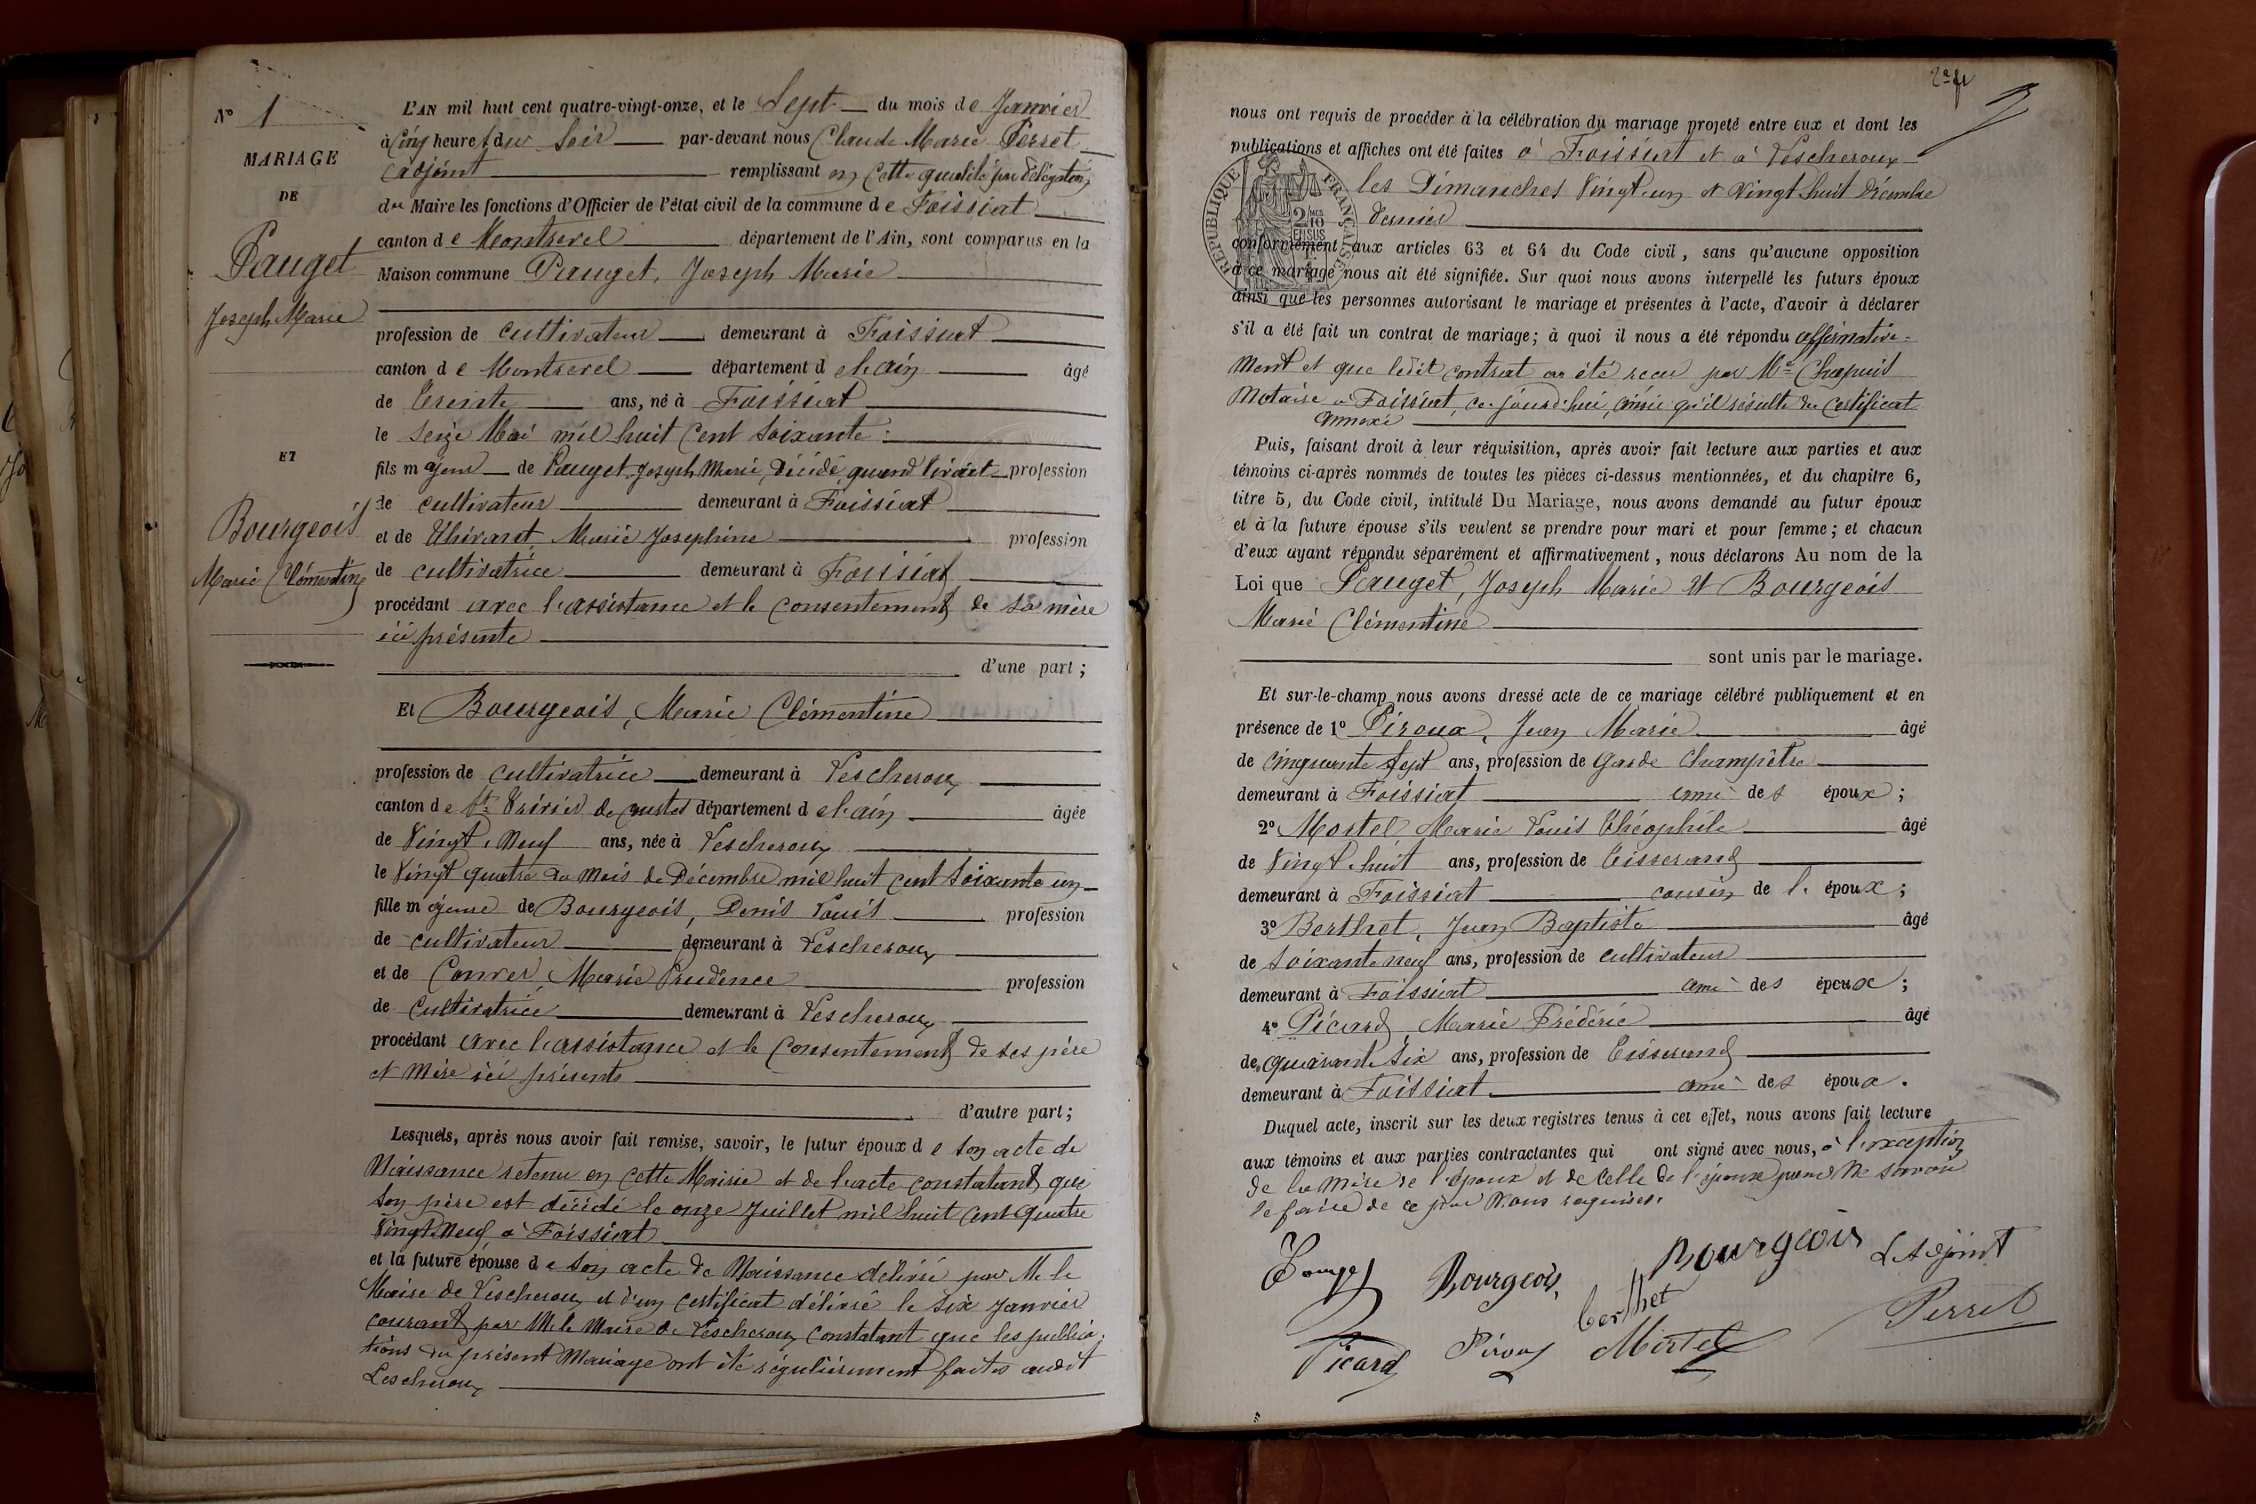 N° 1
MARIAGE
DE
Pauget
Joseph Marie
ET
Bourgeois
Marie Clémentine
L'AN mil huit cent quatre-vingt-onze, et le Sept du mois de Janvier
à Cinq heures du Soir par-devant nous Claude Marie Perret
adjoint remplissant en cette qualité par délégation
du Maire les fonctions d'Officier de l'état civil de la commune de Foissiat
canton de Montrevel département de l'Ain, sont comparus en la
Maison commune Pauget, Joseph Marie
profession de cultivateur demeurant à Foissiat
canton de Montrevel département de l'ain âgé
de Trente ans, né à Foissiat
le seize Mai mil huit Cent Soixante
fils majeur de Pauget Joseph Marie, Décédé, quand vivait profession
de cultivateur demeurant à Foissiat
et de Thévant Marie Josephine profession
de cultivatrice demeurant à Foissiat
procédant avec l'assistance et le consentement de sa mère
ici présente
d'une part ;
Et Bourgeois, Marie Clémentine
profession de cultivatrice demeurant à Lescheroux
canton de St Trivier de courtes département de l'ain âgée
de Vingt Neuf ans, née à Lescheroux
le Vingt quatre du mois de Décembre mil huit cent Soixante un
fille majeure de Bourgeois, Denis Louis profession
de cultivateur demeurant à Lescheroux
et de Convert, Marie Prudence profession
de Cultivatrice demeurant à Lescheroux
procédant avec l'assistance et le Consentement de ses père
et Mère ici présents
d'autre part ;
Lesquels, après nous avoir fait remise, savoir, le futur époux de son acte de
Naissance retenu en cette Mairie et de l'acte constatant que
son père est décédé le onze Juillet mil huit Cent Quatre
Vingt Neuf à Foissiat
et la future épouse de son acte de Naissance délivré par M. le
Maire de Lescheroux et d'un certificat délivré le six Janvier
courant par M. le Maire de Lescheroux constatant que les publica-
tions du présent Mariage ont été régulièrement faites audit
Lescheroux
2e f
nous ont requis de procéder à la célébration du mariage projeté entre eux et dont les
publications et affiches ont été faites à Foissiat et à Lescheroux
les Dimanches Vingt un et Vingt huit décembre
dernier
RÉPUBLIQUE FRANÇAISE
2/10 EN SUS
conformément aux articles 63 et 64 du Code civil, sans qu'aucune opposition
à ce mariage nous ait été signifiée. Sur quoi nous avons interpellé les futurs époux
ainsi que les personnes autorisant le mariage et présentes à l'acte, d'avoir à déclarer
s'il a été fait un contrat de mariage; à quoi il nous a été répondu affirmative-
ment et que ledit contrat a été reçu par Me Chapuis
Notaire à Foissiat, ce jourd'hui, ainsi qu'il résulte du certificat
annexé
Puis, faisant droit à leur réquisition, après avoir fait lecture aux parties et aux
témoins ci-après nommés de toutes les pièces ci-dessus mentionnées, et du chapitre 6,
titre 5, du Code civil, intitulé Du Mariage, nous avons demandé au futur époux
et à la future épouse s'ils veulent se prendre pour mari et pour femme ; et chacun
d'eux ayant répondu séparément et affirmativement, nous déclarons Au nom de la
Loi que Pauget, Joseph Marie et Bourgeois
Marie Clémentine
sont unis par le mariage.
Et sur-le-champ nous avons dressé acte de ce mariage célébré publiquement et en
présence de 1° Piroux, Jean Marie âgé
de Cinquante Sept ans, profession de Garde Champêtre
demeurant à Foissiat ami des époux ;
2° Mortel Marie Louis Théophile âgé
de Vingt huit ans, profession de Tisserand
demeurant à Foissiat cousin de l'époux ;
3° Berthet, Jean Baptiste âgé
de Soixante neuf ans, profession de cultivateur
demeurant à Foissiat ami des époux ;
4° Picard Marie Frédéric âgé
de quarante Six ans, profession de Tisserand
demeurant à Foissiat ami des époux.
Duquel acte, inscrit sur les deux registres tenus à cet effet, nous avons fait lecture
aux témoins et aux parties contractantes qui ont signé avec nous, à l'exception
de la Mère de l'époux et de celle de l'épouse pour Ne savoir
le faire de ce par Nous requises.
Pauget Bourgeois Bourgeois L'Adjoint
Berthet Perret
Picard Piroux Mortel